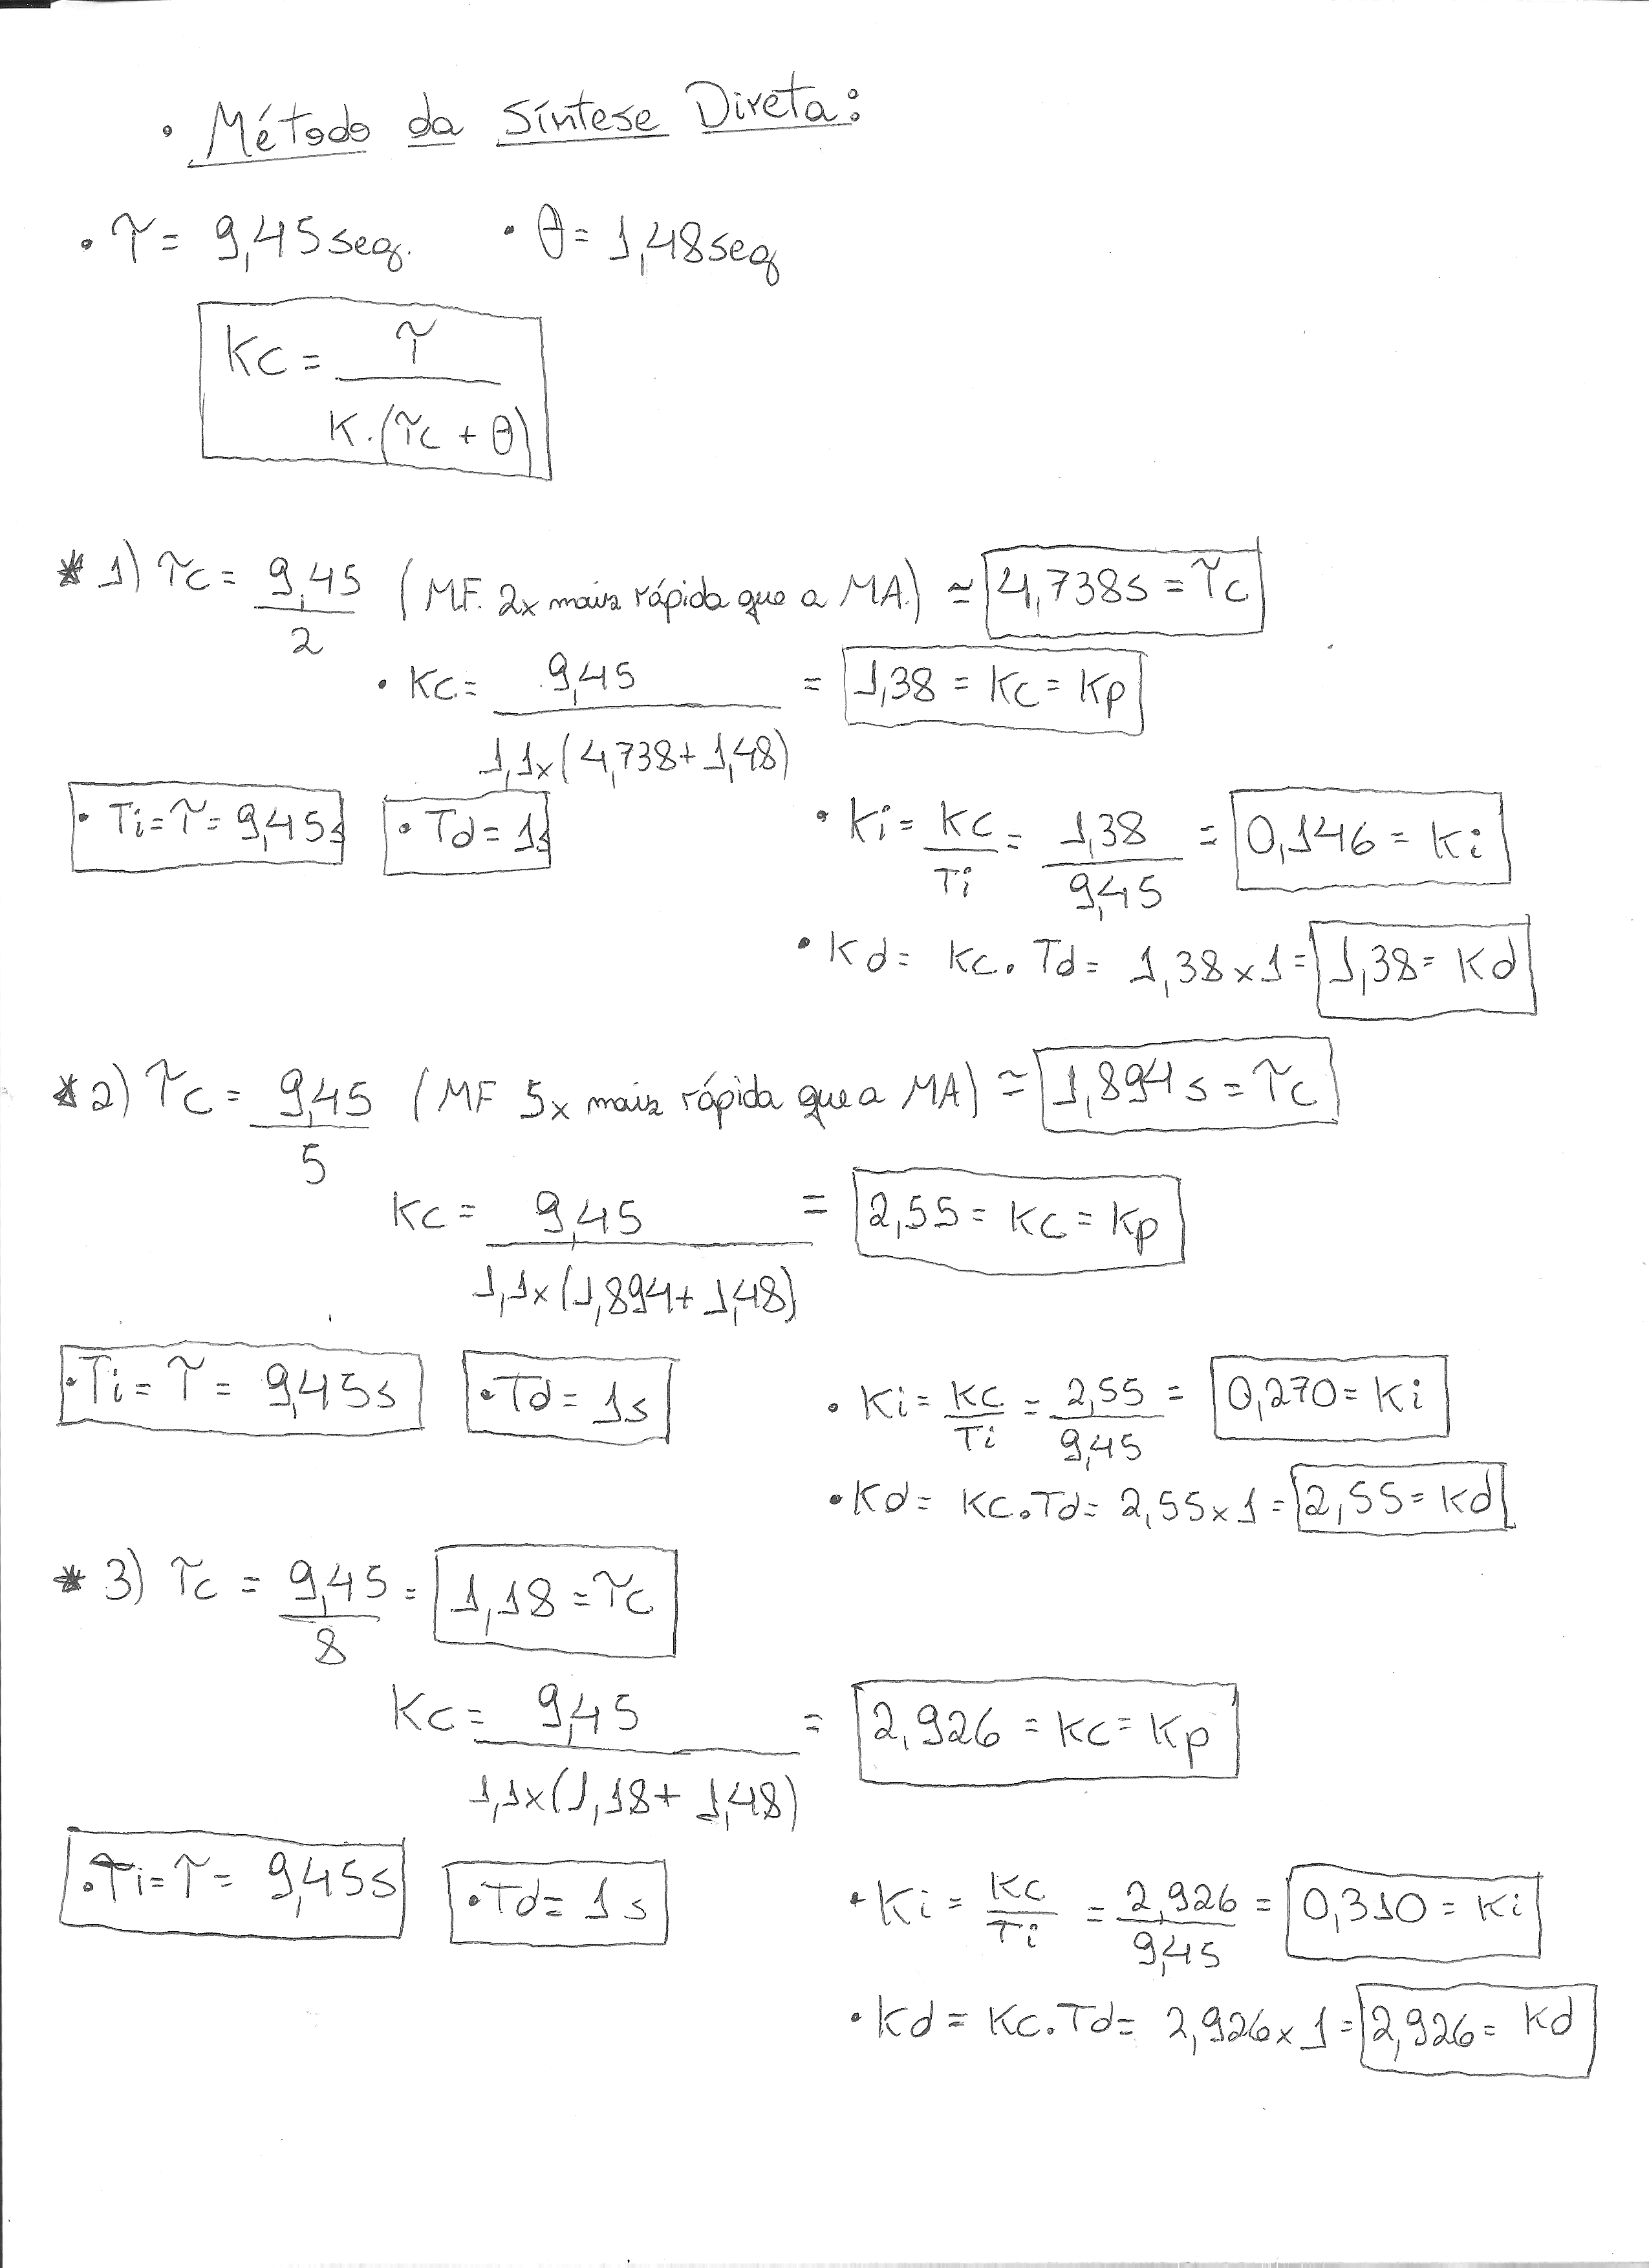 • Método da Síntese Direta:
• τ = 9,45seg. • θ = 1,48seg
Kc = τ / K.(τc + θ)
* 1) τc = 9,45 / 2 (M.F. 2x mais rápida que a MA.) ≃ 4,738s = τc
• Kc = 9,45 / 1,1x(4,738+1,48) = 1,38 = Kc = Kp
• Ti = τ = 9,45s • Td = 1s • Ki = Kc / Ti = 1,38 / 9,45 = 0,146 = Ki
• Kd = Kc . Td = 1,38 x 1 = 1,38 = Kd
* 2) τc = 9,45 / 5 (MF 5x mais rápida que a MA) ≃ 1,894s = τc
Kc = 9,45 / 1,1x(1,894+1,48) = 2,55 = Kc = Kp
• Ti = τ = 9,45s • Td = 1s • Ki = Kc / Ti = 2,55 / 9,45 = 0,270 = Ki
• Kd = Kc.Td = 2,55 x 1 = 2,55 = Kd
* 3) τc = 9,45 / 8 = 1,18 = τc
Kc = 9,45 / 1,1x(1,18 + 1,48) = 2,926 = Kc = Kp
• Ti = τ = 9,45s • Td = 1s • Ki = Kc / Ti = 2,926 / 9,45 = 0,310 = Ki
• Kd = Kc.Td = 2,926 x 1 = 2,926 = Kd